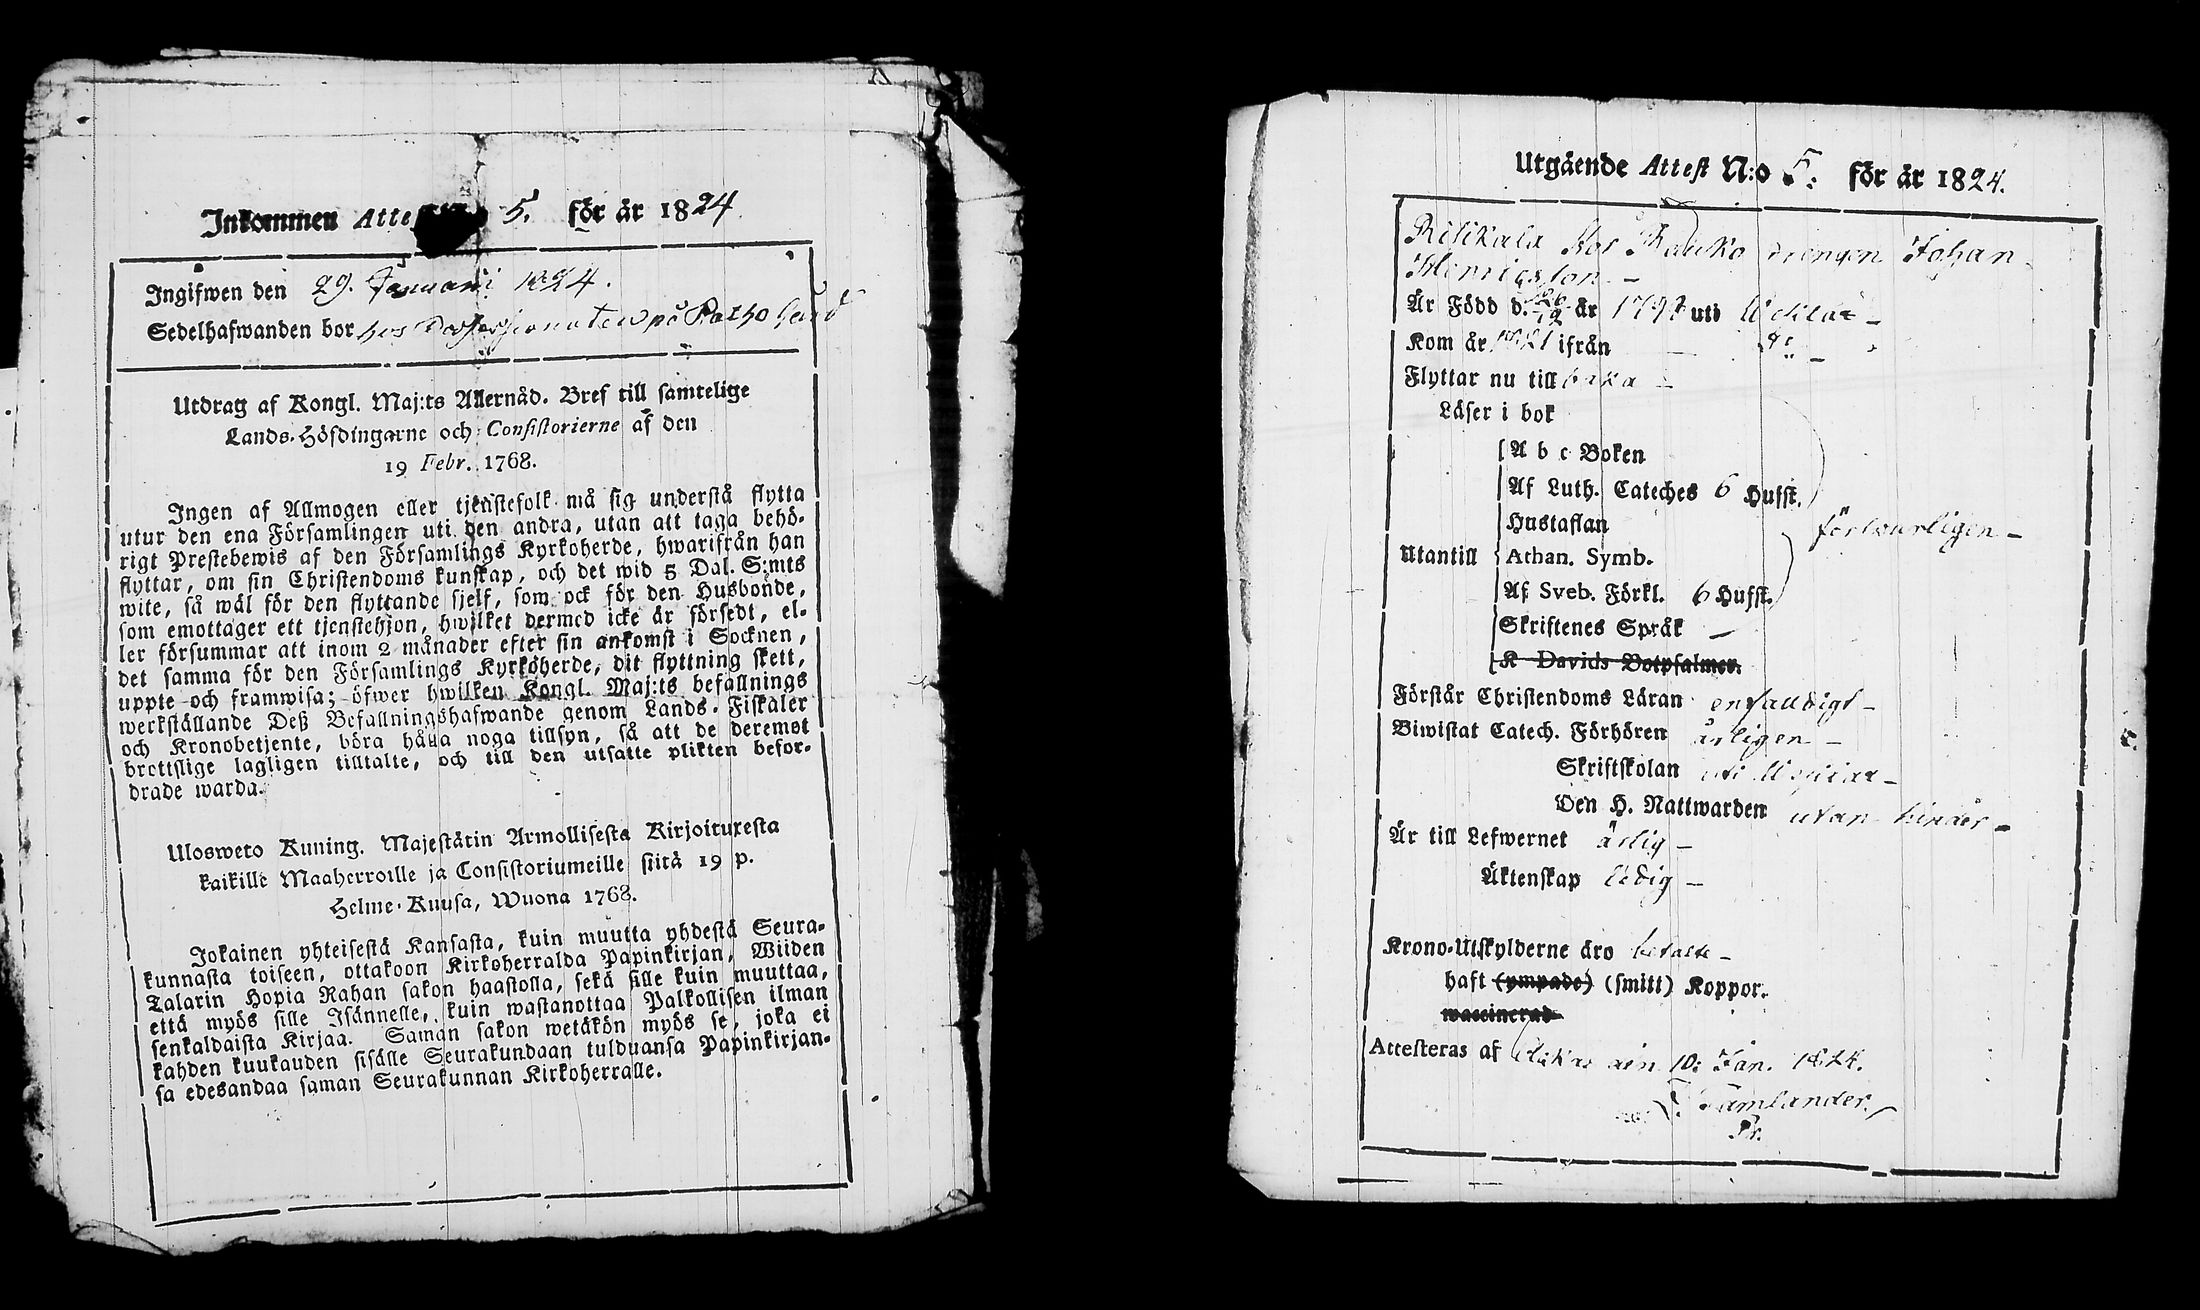 Inkommen Attest N:o 5. för år 1824
Ingifwen den 29. Januari 1824.
Sedelhafwanden bor hos på
Utdrag af Kongl. Maj:ts Allernåd. Bref till samtelige
Lands-Höfdingarne och Consistorierne af den
19 Febr. 1768.
Ingen af Allmogen eller tjenstefolk må sig understå flytta
utur den ena Församlingen uti den andra, utan att taga behö-
rigt Prestebewis af den Församlings Kyrkoherde, hwarifrån han
flyttar, om sin Christendoms kunskap, och det wid 5 Dal. S:mts
wite, så wäl för den flyttande sjelf, som ock för den Husbonde,
som emottager ett tjenstehjon, hwilket dermed icke är försedt, el-
ler försummar att inom 2 månader efter sin ankomst i Socknen,
det samma för den Församlings Kyrkoherde, dit flyttning skett,
uppte och framwisa; öfwer hwilken Kongl. Maj:ts befallnings
werkställande Deß Befallningshafwande genom Lands-Fiskaler
och Kronobetjente, böra hålla noga tillsyn, så att de deremot
brottslige lagligen tilltalte, och till den utsatte plikten befor-
drade warda.
Ulosweto Kuning. Majestätin Armollisesta Kirjoituxesta
kaikille Maaherroille ja Consistoriumeille siitä 19 p.
Helme-Kuusa, Wuona 1768.
Jokainen yhteisestä Kansasta, kuin muutta yhdestä Seura-
kunnasta toiseen, ottakoon Kirkoherralda Papinkirjan, Wiiden
Talarin Hopia Rahan sakon haastolla, sekä sille kuin muuttaa,
että myös sille Isännelle, kuin wastanottaa Palkollisen ilman
senkaldaista Kirjaa. Saman sakon wetäkön myös se, joka ei
kahden kuukauden sisälle Seurakundaan tulduansa Papinkirjan-
sa edesandaa saman Seurakunnan Kirkoherralle.
Utgående Attest N:o 5: för år 1824.
Ritikala drengen Johan
Henricsson
Är Född d. år uti
Kom år 1821 ifrån d:o
Flyttar nu till baka
Läser i bok
A b c Boken
Af Luth. Cateches 6 Hufst.
Hustaflan
försvarligen
Utantill Athan. Symb.
Af Sveb. Förkl. 6 Hufst.
Skriftenes Språk
K Davids Botpsalmer.
Förstår Christendoms Läran enfalldigt
Biwistat Catech. Förhören årligen
Skriftskolan
Den H. Nattwarden utan hinder
Är till Lefwernet ärlig
Äktenskap ledig
Krono-Utskylderne äro betalte
haft (ympade) (smitt) Koppor.
waccinerad
Attesteras af den 10: Jan. 1824.
Tamlander
Pr.